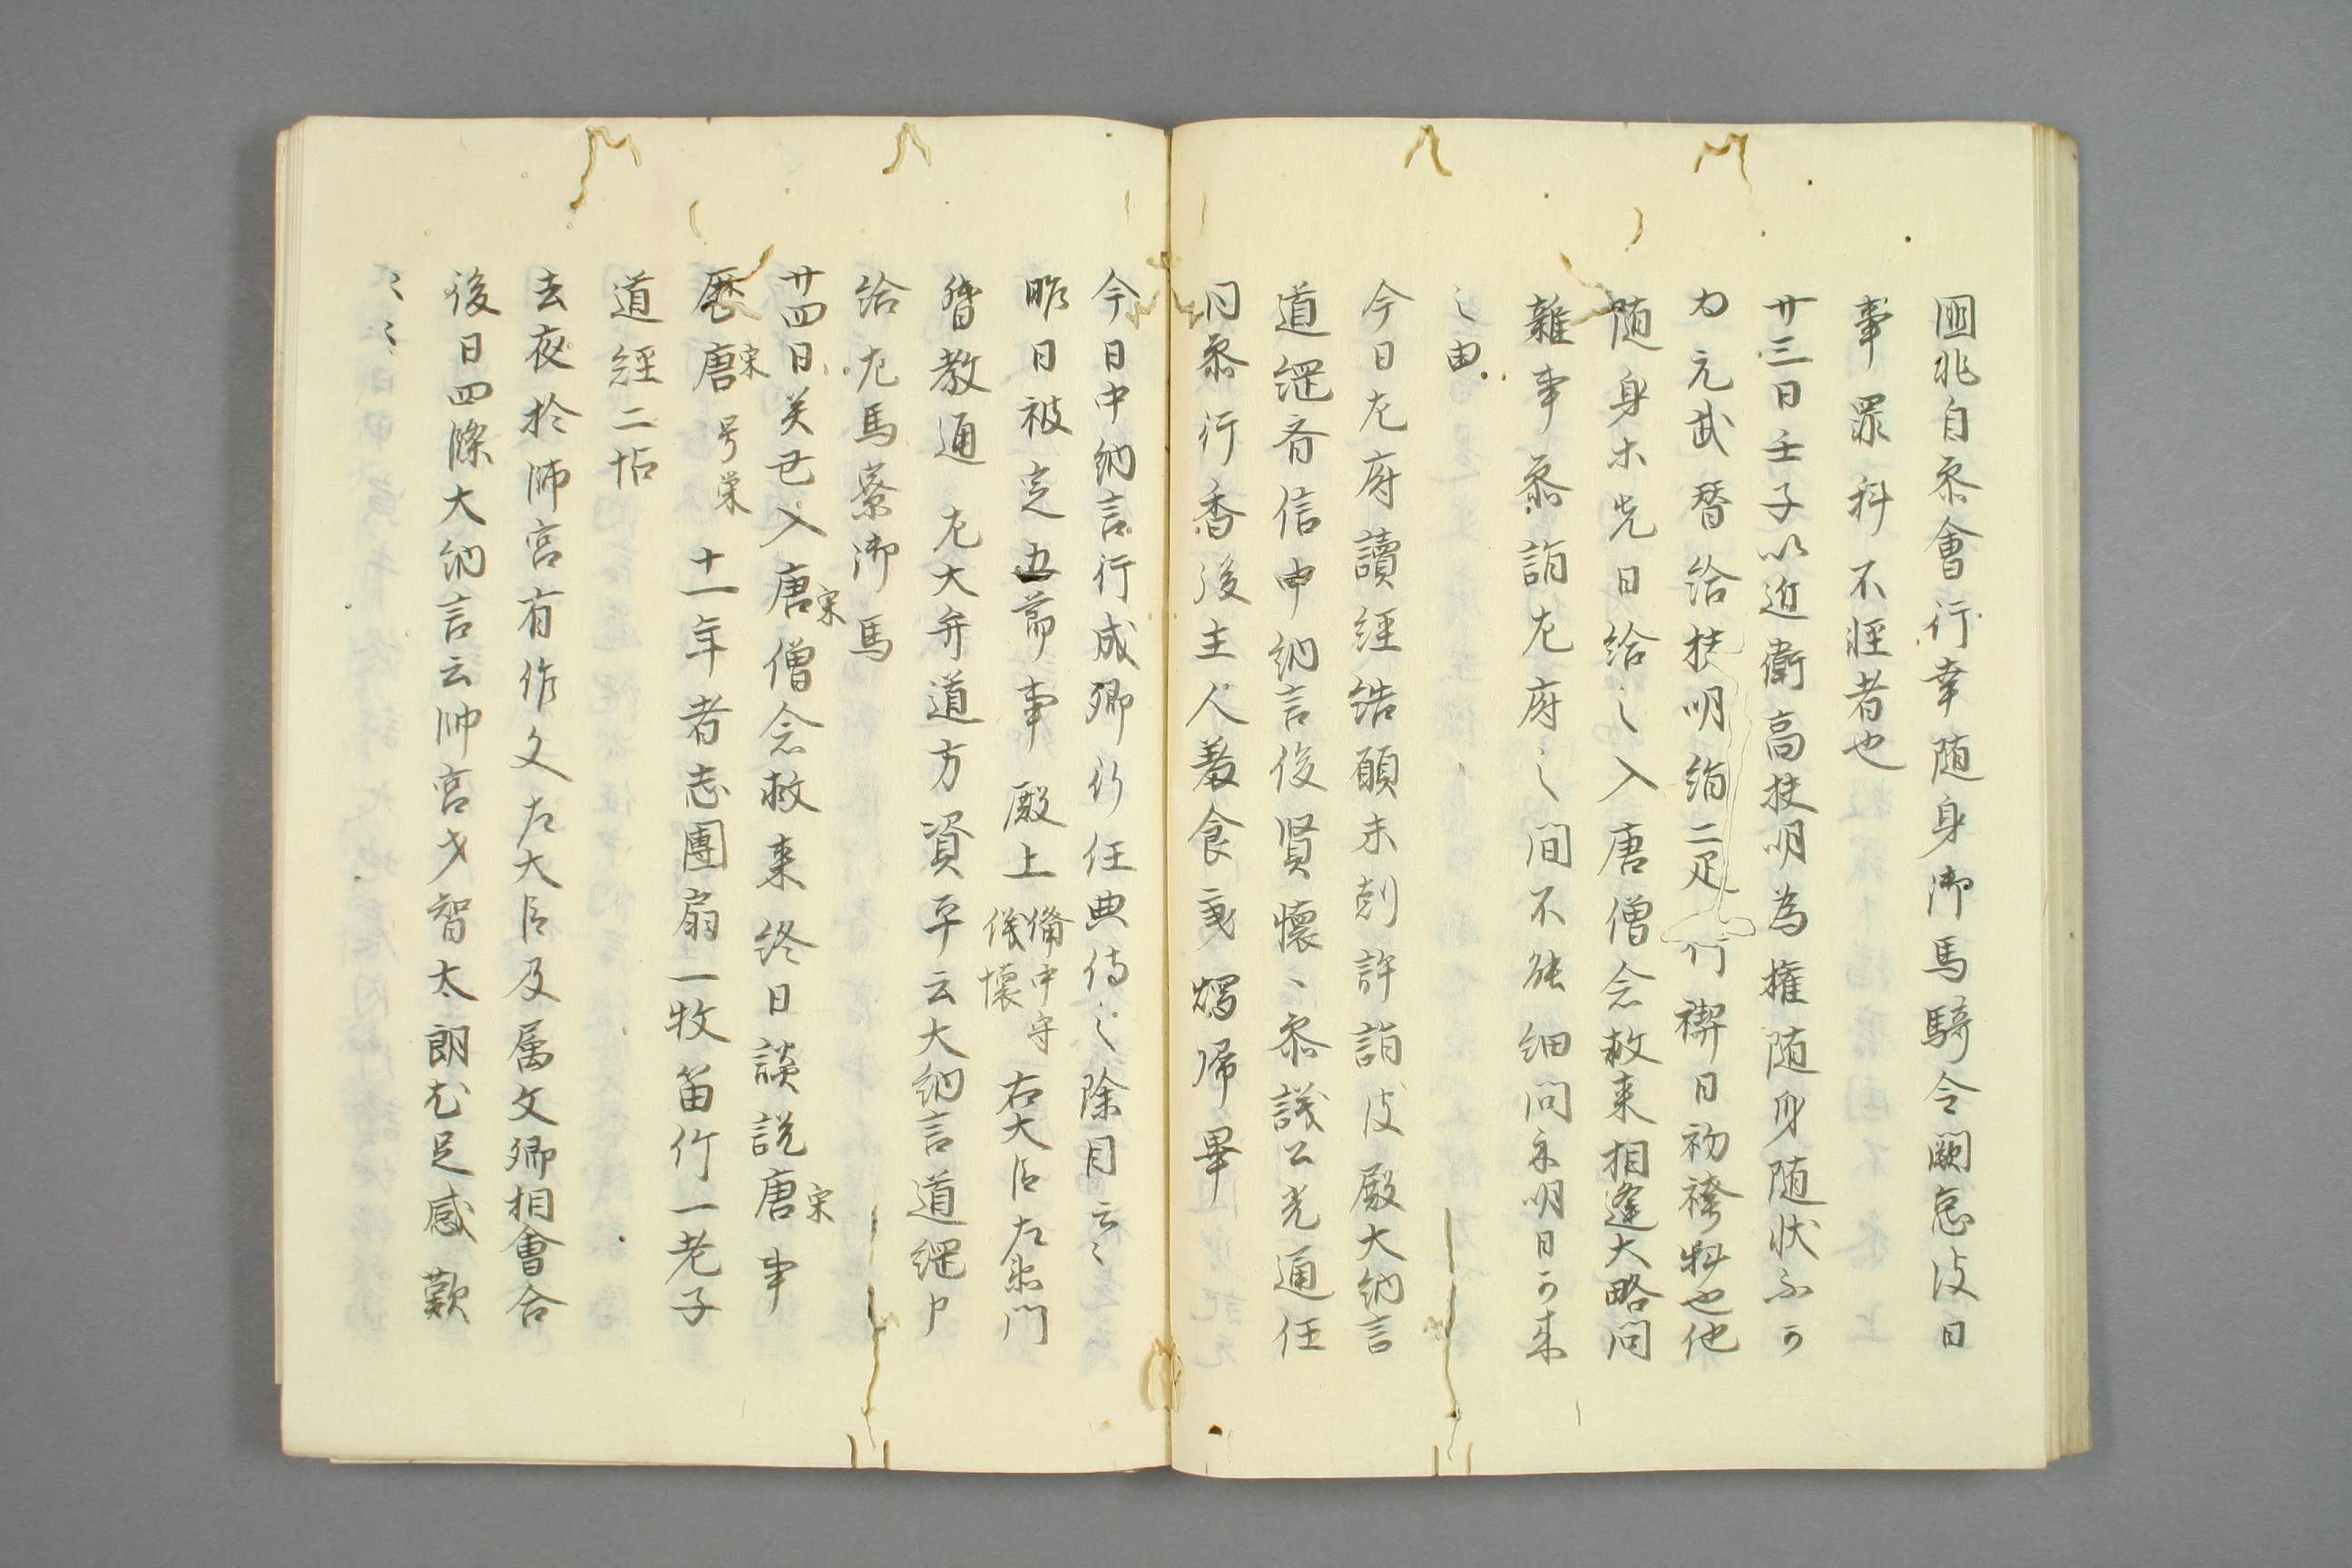 国兆自参會行幸随身御馬騎令闕怠彼日
事罪科不軽者也
廿三日壬子以近衛高扶明為権随身随状不可
為元武替給扶明絹二疋 行禊日初襟料也他
随身木先日給之入唐僧念救来相逢大略問
雑事参詣左府之間不能細問示明日可来
之由
今日左府讀経結願未剋許詣彼殿大納言
道綱斉信中納言俊賢懐〻参議公光通任
同参行香後主人羞食 帰畢
今日中納言行成卿 任典侍之除目云〻
昨日被定五節事殿上備中守儀懐右大臣左衛門
督教通左大弁道方資平云大納言道綱戸
給左馬寮御馬
廿四日关丑入唐宋僧念救来終日談説唐宋事
歴唐宋号栄十一年者志團扇一牧笛竹一老子
道経二帖
去夜於帥宮有作文左大臣及属文卿相會合
後日四條大納言云帥宮才智太朗尤足感歎
〻〻